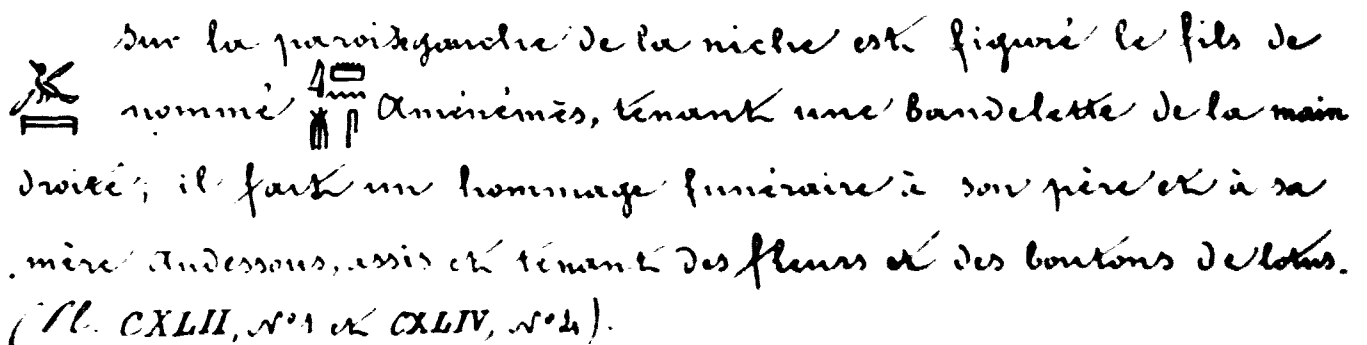 Sur la paroi gauche de la niche est figuré le fils de
𓅮𓊪 nommé 𓇋𓏠𓈖𓄟𓋴 Aménémès, tenant une bandelette de la main
droite; il fait un hommage funéraire à son père et à sa
mère Audessous, assis et tenant des fleurs et des boutons de lotus.
(Pl. CXLII, N°1 et CXLIV, N°4).